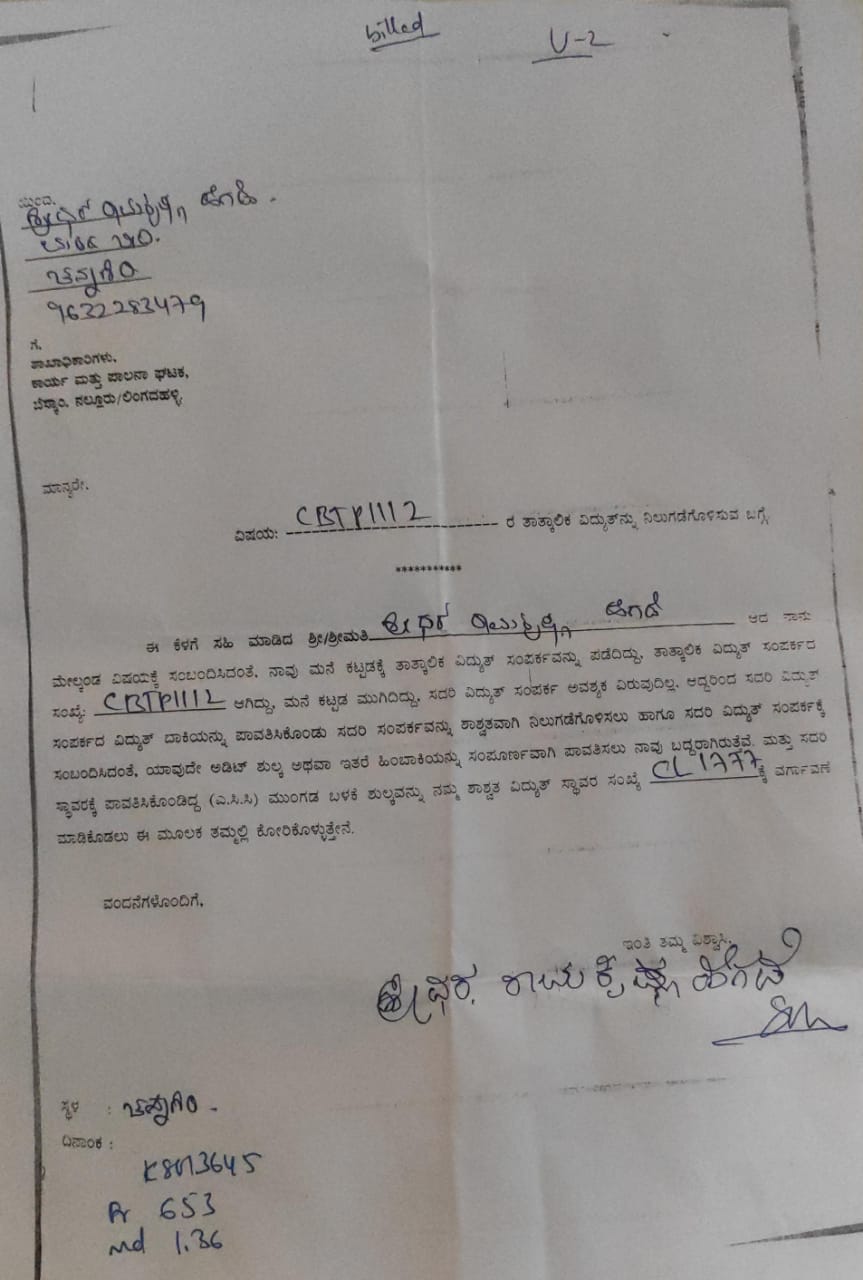 billed
U-2
ಇಂದ,
ಶ್ರೀಧರ ರಾಮಕೃಷ್ಣ ಹೆಗಡೆ.
ಚನ್ನಗಿರಿ
9632283479
ಗೆ,
ಶಾಖಾಧಿಕಾರಿಗಳು,
ಕಾರ್ಯ ಮತ್ತು ಪಾಲನಾ ಘಟಕ,
ಬೆಸ್ಕಾಂ, ನಲ್ಲೂರು/ಲಿಂಗದಹಳ್ಳಿ
ಮಾನ್ಯರೇ,
ವಿಷಯ: CBTP1112 ರ ತಾತ್ಕಾಲಿಕ ವಿದ್ಯುತ್‌ನ್ನು ನಿಲುಗಡೆಗೊಳಿಸುವ ಬಗ್ಗೆ
***********
ಈ ಕೆಳಗೆ ಸಹಿ ಮಾಡಿದ ಶ್ರೀ/ಶ್ರೀಮತಿ ಶ್ರೀಧರ ರಾಮಕೃಷ್ಣ ಹೆಗಡೆ ಆದ ನಾನು
ಮೇಲ್ಕಂಡ ವಿಷಯಕ್ಕೆ ಸಂಬಂದಿಸಿದಂತೆ, ನಾವು ಮನೆ ಕಟ್ಟಡಕ್ಕೆ ತಾತ್ಕಾಲಿಕ ವಿದ್ಯುತ್ ಸಂಪರ್ಕವನ್ನು ಪಡೆದಿದ್ದು, ತಾತ್ಕಾಲಿಕ ವಿದ್ಯುತ್ ಸಂಪರ್ಕದ
ಸಂಖ್ಯೆ: CBTP1112 ಆಗಿದ್ದು, ಮನೆ ಕಟ್ಟಡ ಮುಗಿದಿದ್ದು, ಸದರಿ ವಿದ್ಯುತ್ ಸಂಪರ್ಕ ಅವಶ್ಯಕ ವಿರುವುದಿಲ್ಲ. ಆದ್ದರಿಂದ ಸದರಿ ವಿದ್ಯುತ್
ಸಂಪರ್ಕದ ವಿದ್ಯುತ್ ಬಾಕಿಯನ್ನು ಪಾವತಿಸಿಕೊಂಡು ಸದರಿ ಸಂಪರ್ಕವನ್ನು ಶಾಶ್ವತವಾಗಿ ನಿಲುಗಡೆಗೊಳಿಸಲು ಹಾಗೂ ಸದರಿ ವಿದ್ಯುತ್ ಸಂಪರ್ಕಕ್ಕೆ
ಸಂಬಂದಿಸಿದಂತೆ, ಯಾವುದೇ ಆಡಿಟ್ ಶುಲ್ಕ ಅಥವಾ ಇತರೆ ಹಿಂಬಾಕಿಯನ್ನು ಸಂಪೂರ್ಣವಾಗಿ ಪಾವತಿಸಲು ನಾವು ಬದ್ದರಾಗಿರುತ್ತೆವೆ. ಮತ್ತು ಸದರಿ
ಸ್ಥಾವರಕ್ಕೆ ಪಾವತಿಸಿಕೊಂಡಿದ್ದ (ಎ.ಸಿ.ಸಿ) ಮುಂಗಡ ಬಳಕೆ ಶುಲ್ಕವನ್ನು ನಮ್ಮ ಶಾಶ್ವತ ವಿದ್ಯುತ್ ಸ್ಥಾವರ ಸಂಖ್ಯೆ CL1777 ಕ್ಕೆ ವರ್ಗಾವಣೆ
ಮಾಡಿಕೊಡಲು ಈ ಮೂಲಕ ತಮ್ಮಲ್ಲಿ ಕೋರಿಕೊಳ್ಳುತ್ತೇನೆ.
ವಂದನೆಗಳೊಂದಿಗೆ,
ಇಂತಿ ತಮ್ಮ ವಿಶ್ವಾಸಿ,
ಶ್ರೀಧರ ರಾಮಕೃಷ್ಣ ಹೆಗಡೆ
ಸ್ಥಳ : ಚನ್ನಗಿರಿ.
ದಿನಾಂಕ :
K8013645
Pr 653
Md 1.36